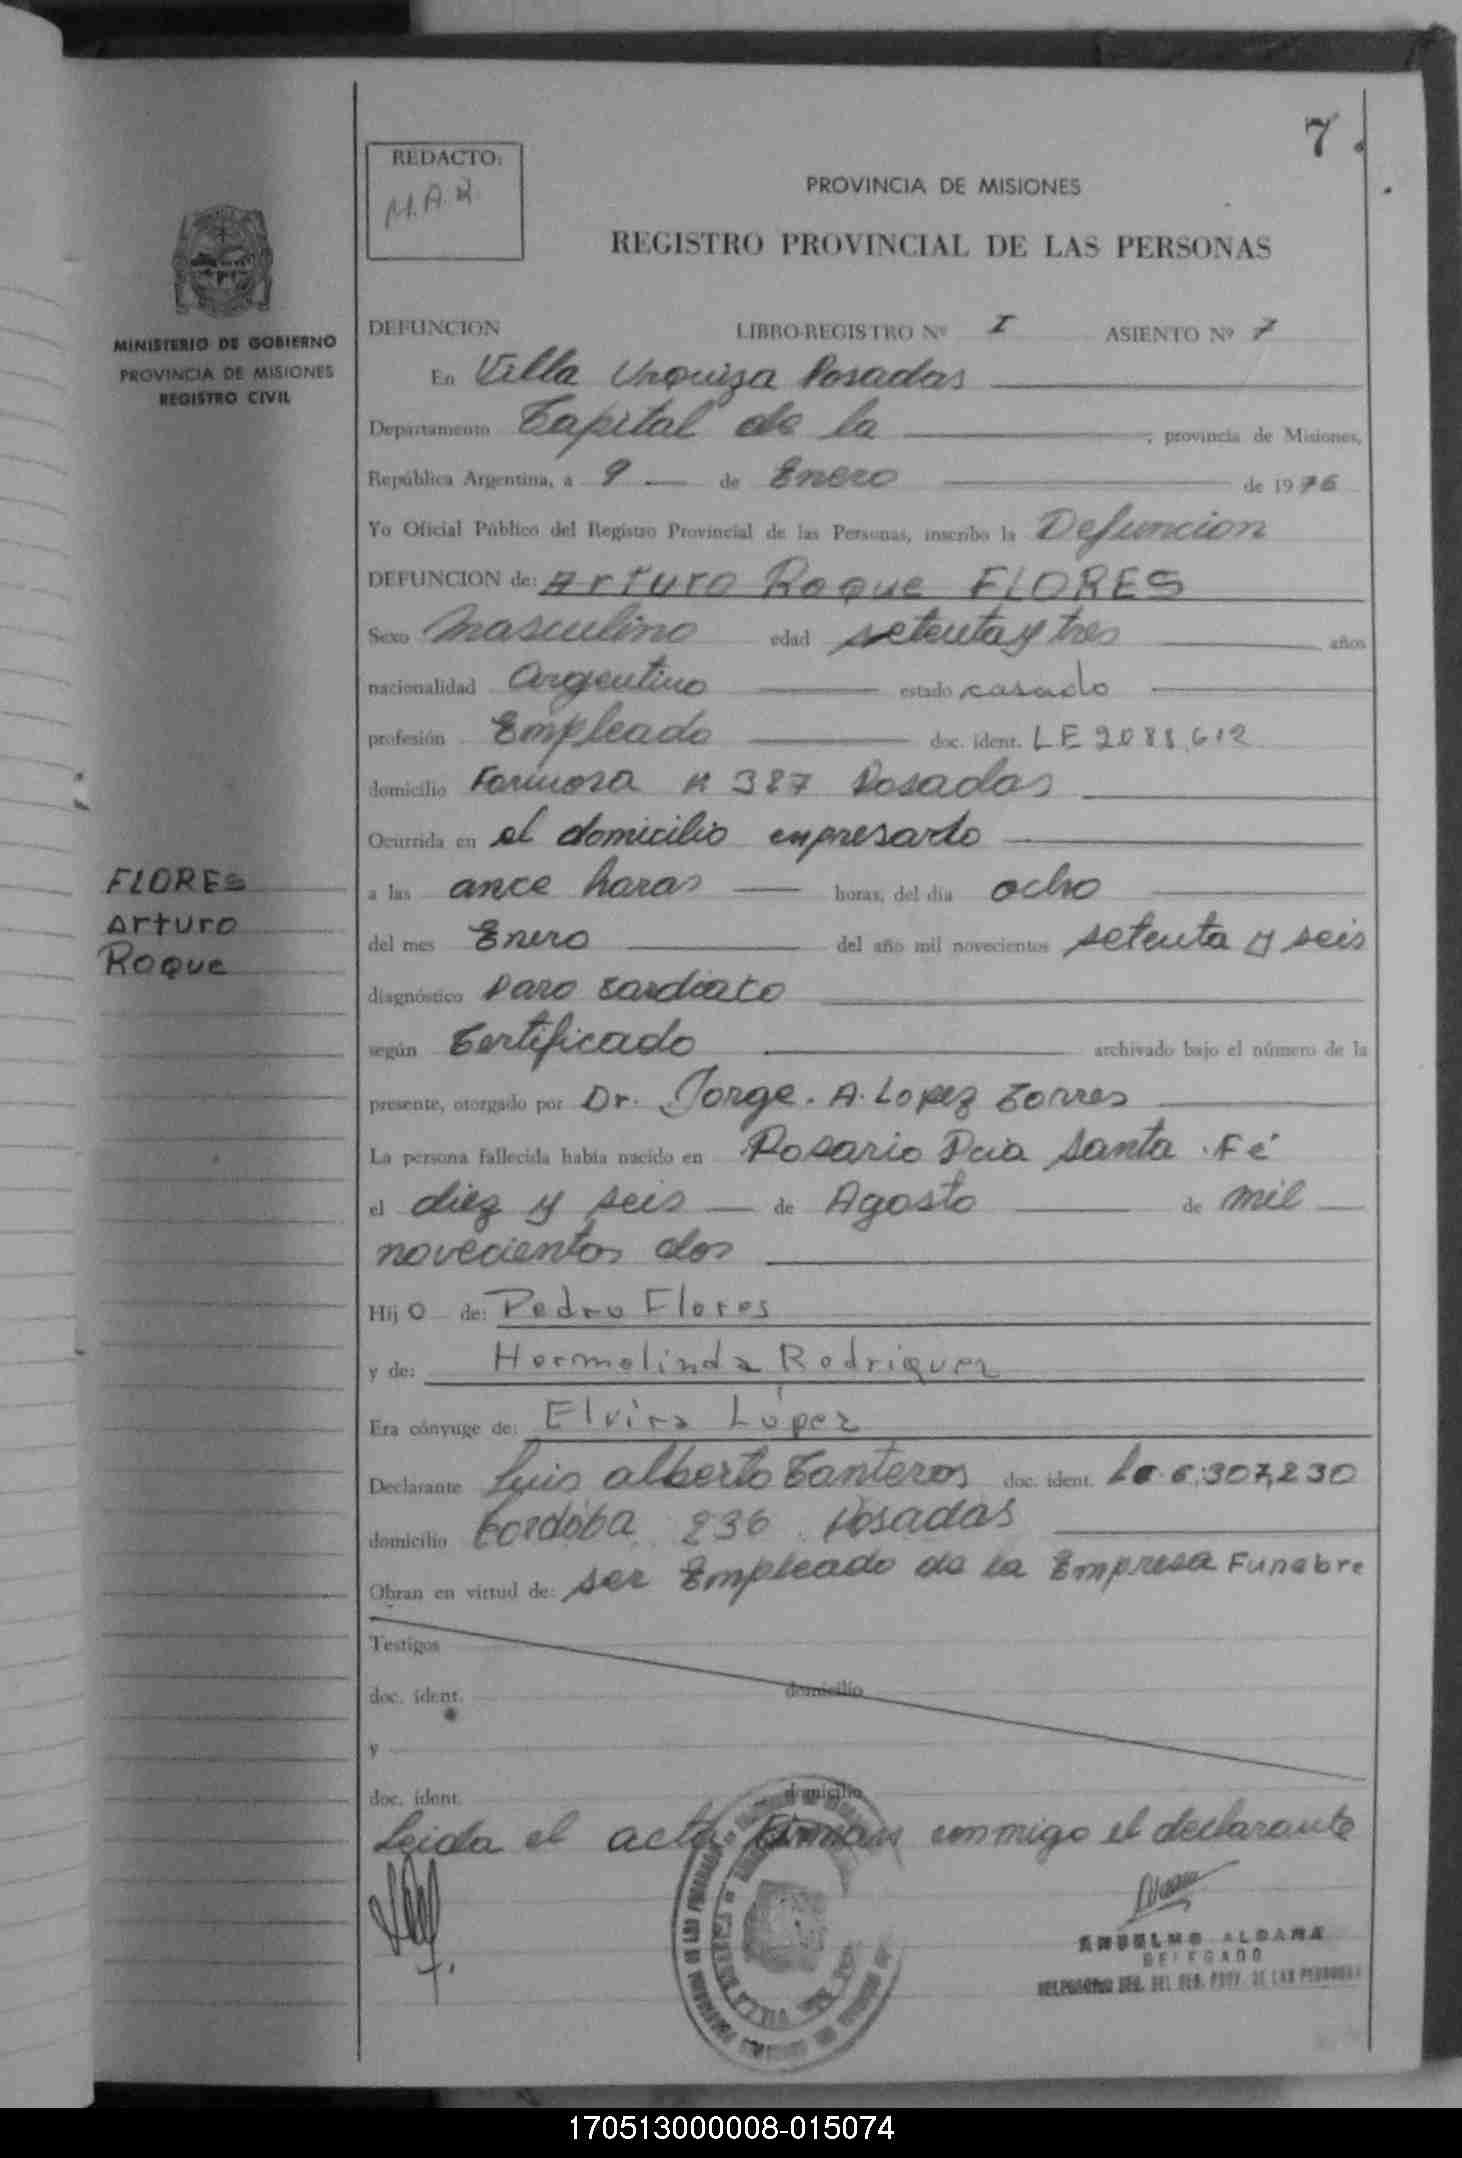 7.
REDACTO:
M.A.R.
PROVINCIA DE MISIONES
REGISTRO PROVINCIAL DE LAS PERSONAS
MINISTERIO DE GOBIERNO
PROVINCIA DE MISIONES
REGISTRO CIVIL
DEFUNCION LIBRO-REGISTRO Nº I ASIENTO Nº 7
En Villa Urquiza Posadas
Departamento Capital de la , provincia de Misiones,
República Argentina, a 9 de Enero de 1976
Yo Oficial Público del Registro Provincial de las Personas, inscribo la Defuncion
DEFUNCION de: Arturo Roque FLORES
Sexo Masculino edad setenta y tres años
nacionalidad Argentino estado casado
profesión Empleado doc. ident. LE 2088.612
domicilio Formosa N 387 Posadas
Ocurrida en el domicilio expresado
FLORES
Arturo
Roque
a las once horas horas, del día ocho
del mes Enero del año mil novecientos setenta y seis
diagnóstico Paro cardiaco
según Certificado archivado bajo el número de la
presente, otorgado por Dr. Jorge. A. Lopez Torres
La persona fallecida había nacido en Rosario Pcia Santa. Fé
el diez y seis de Agosto de mil
novecientos dos
Hij o de: Pedro Flores
y de: Hermelinda Rodriguez
Era cónyuge de: Elvira López
Declarante Luis alberto Canteros doc. ident. 6.307,230
domicilio Cordoba 236 Posadas
Obran en virtud de: ser Empleado de la Empresa Funebre
Testigos
doc. ident. domicilio
y
doc. ident. domicilio
Leida el acta Firman conmigo el declarante
ANSELMO ALDANA
DELEGADO
170513000008-015074